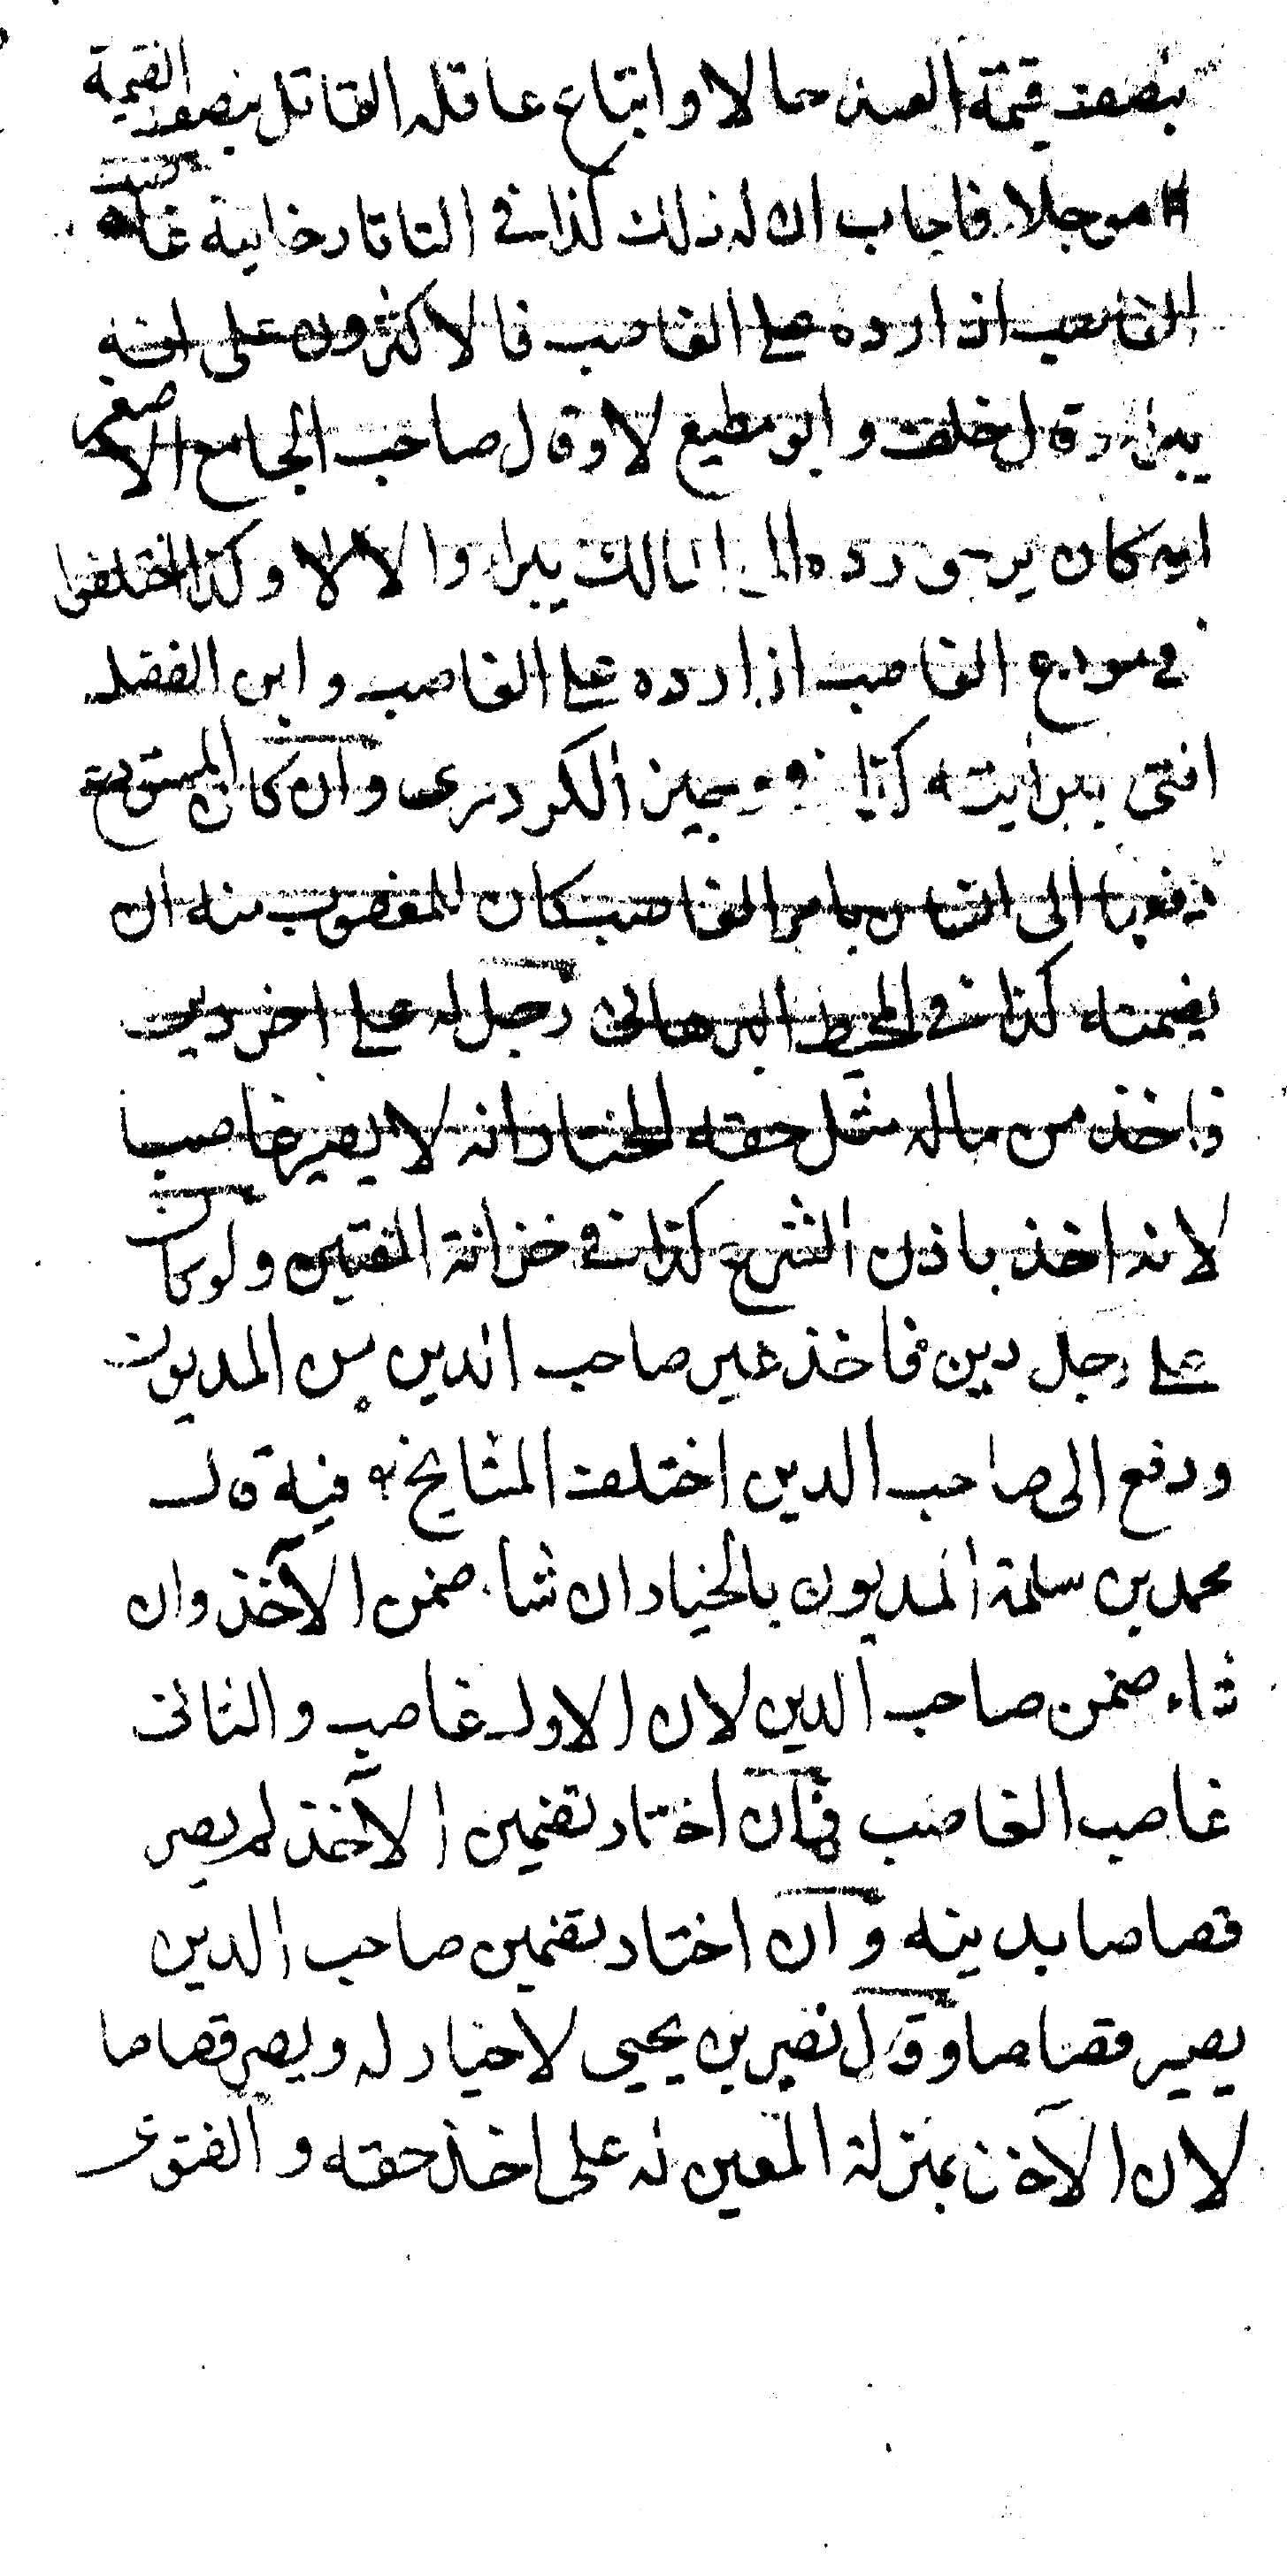 بنصف قيمة العبد حالا واتباع عاقلة القاتل بنصف القيمة
موجلا فاجاب ان له ذلك كذا في التاتارخانية غاصب
الغاصب اذا رده على الغاصب فالاكثرون على انه
يبرا وقال خلف وابو مطيع لا وقال صاحب الجامع الاصغر
انه كان يرجو رده الى المالك يبرا والا لا وكذا اختلفوا
في مودع الغاصب اذا رده على الغاصب وابن الفضل
افتى ببرايته كذا في وجيز الكردرى وان كان المستودع
دفعها الى الناس بامر الغاصب كان للمغصوب منه ان
يضمنه كذا في المحيط البرهانى رجل له على اخر دين
فاخذ من ماله مثل حقه المختار انه لا يصير غاصبا
لانه اخذ باذن الشرع كذا في خزانة المفتين ولو كان
على رجل دين فاخذ غير صاحب الدين من المديون
ودفع الى صاحب الدين اختلف المشايخ فيه قال
محمد بن سلمة المديون بالخيار ان شاء ضمن الآخذ وان
شاء ضمن صاحب الدين لان الاول غاصب والثانى
غاصب الغاصب فان اختار تضمين الآخذ لم يصر
قصاصا بدينه وان اختار تضمين صاحب الدين
يصير قصاصا وقال نصير بن يحيى لا خيار له ويصير قصاصا
لان الآخذ بمنزلة المعين له على اخذ حقه والفتوى